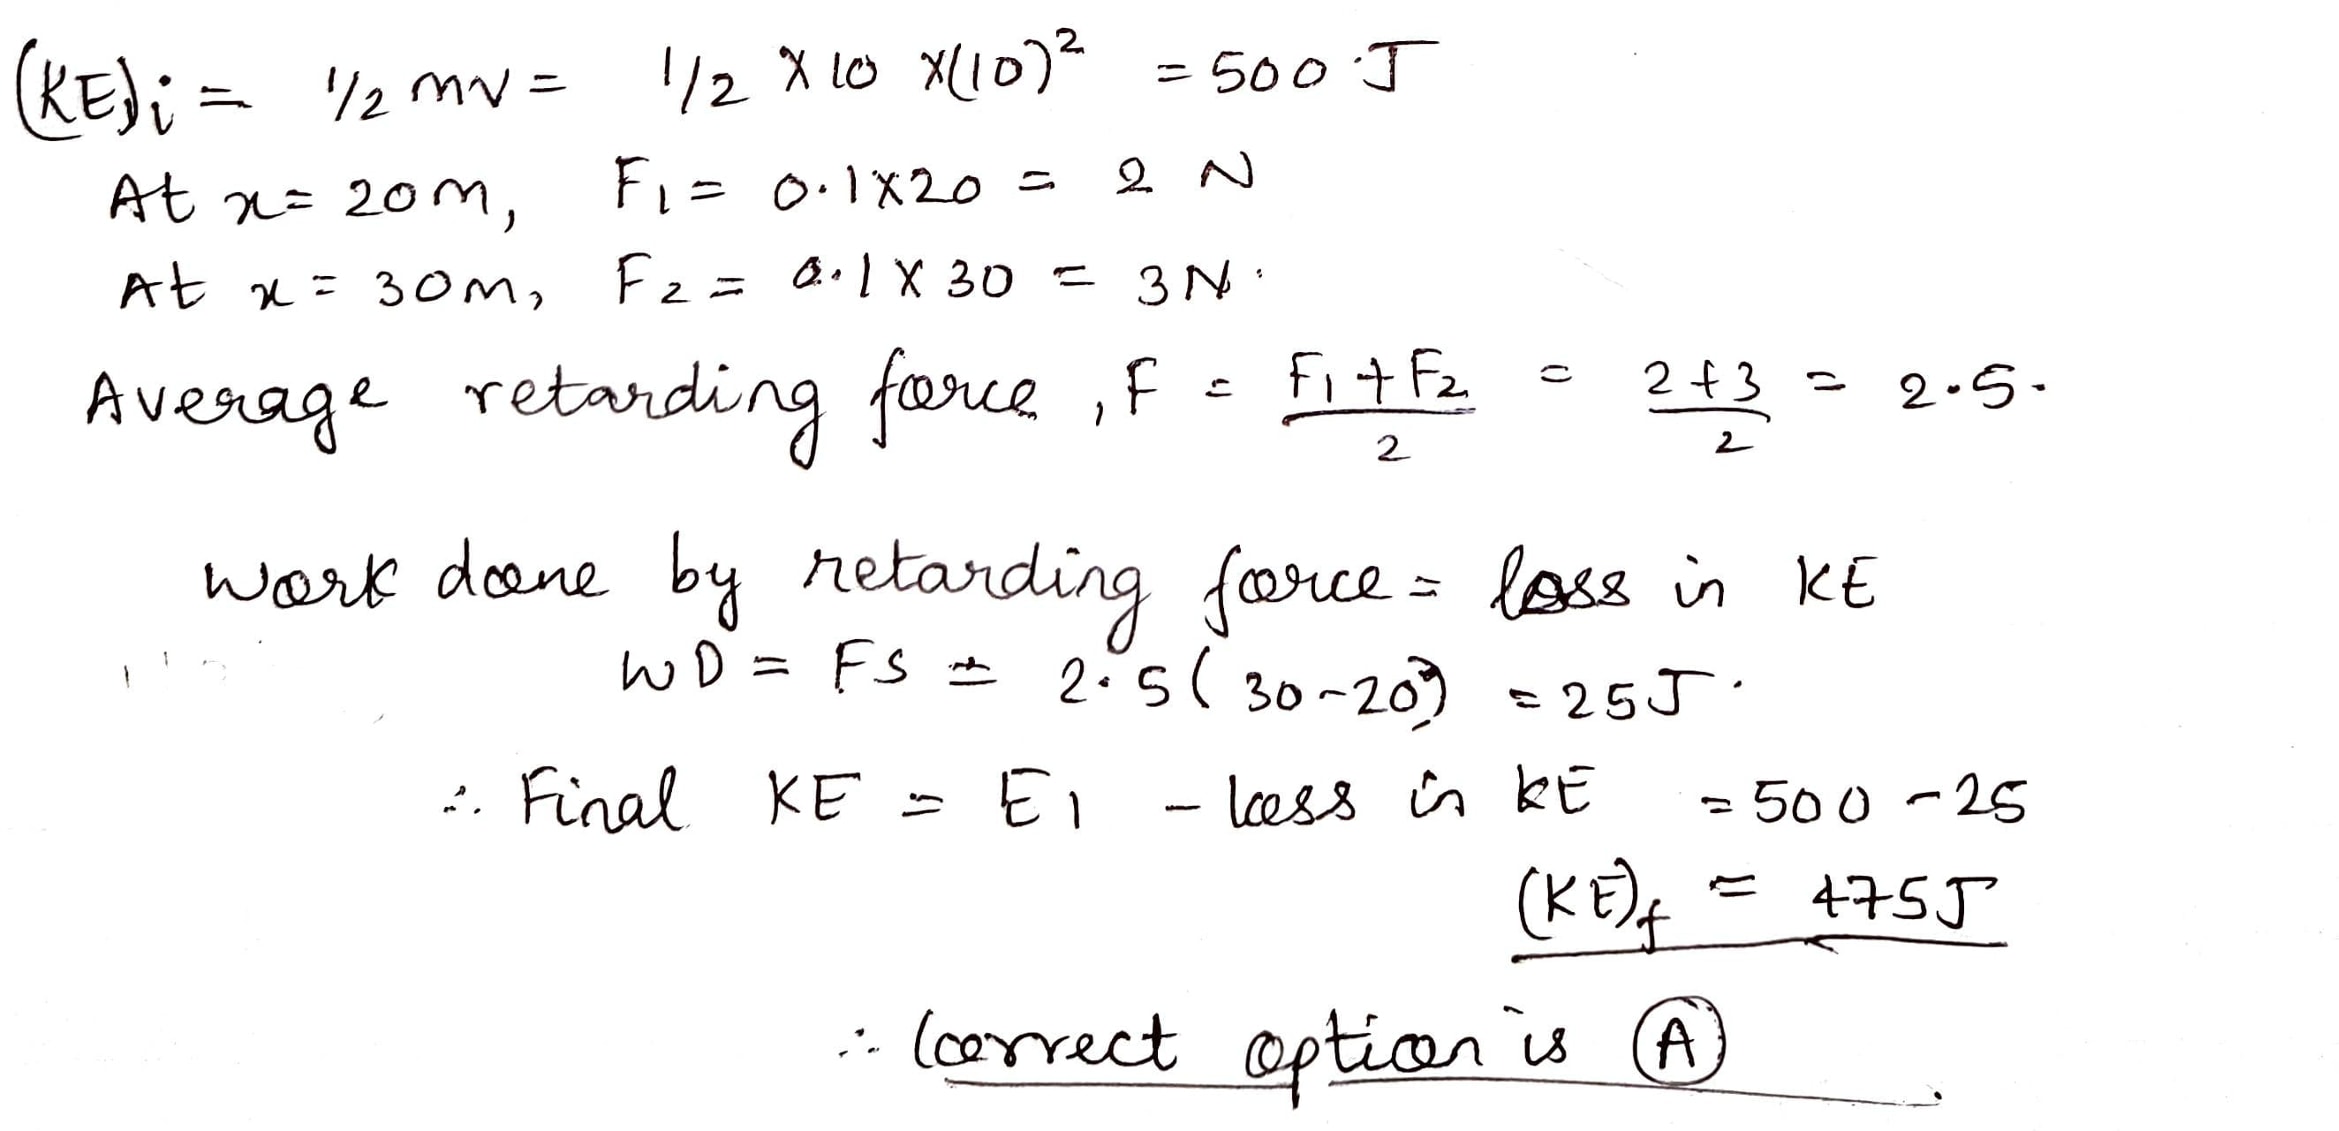 (KE)i = 1/2 mv = 1/2 × 10 ×(10)² = 500 J
At x = 20m, F1 = 0.1×20 = 2 N
At x = 30m, F2 = 0.1 × 30 = 3N.
Average retarding force, F = F1+F2/2 = 2+3/2 = 2.5.
work done by retarding force = loss in KE
WD = FS = 2.5(30-20) = 25J.
∴ Final KE = E1 - loss in KE = 500 - 25
(KE)f = 475J
∴ Correct option is A